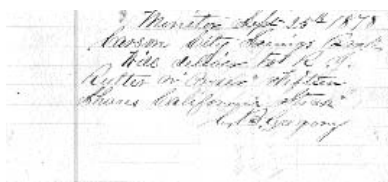 Monitor Sept 25th 1873
Carson City Savings Bank
Will deliver to R. M.
or order Fifteen
Shares California Stock
Gregory